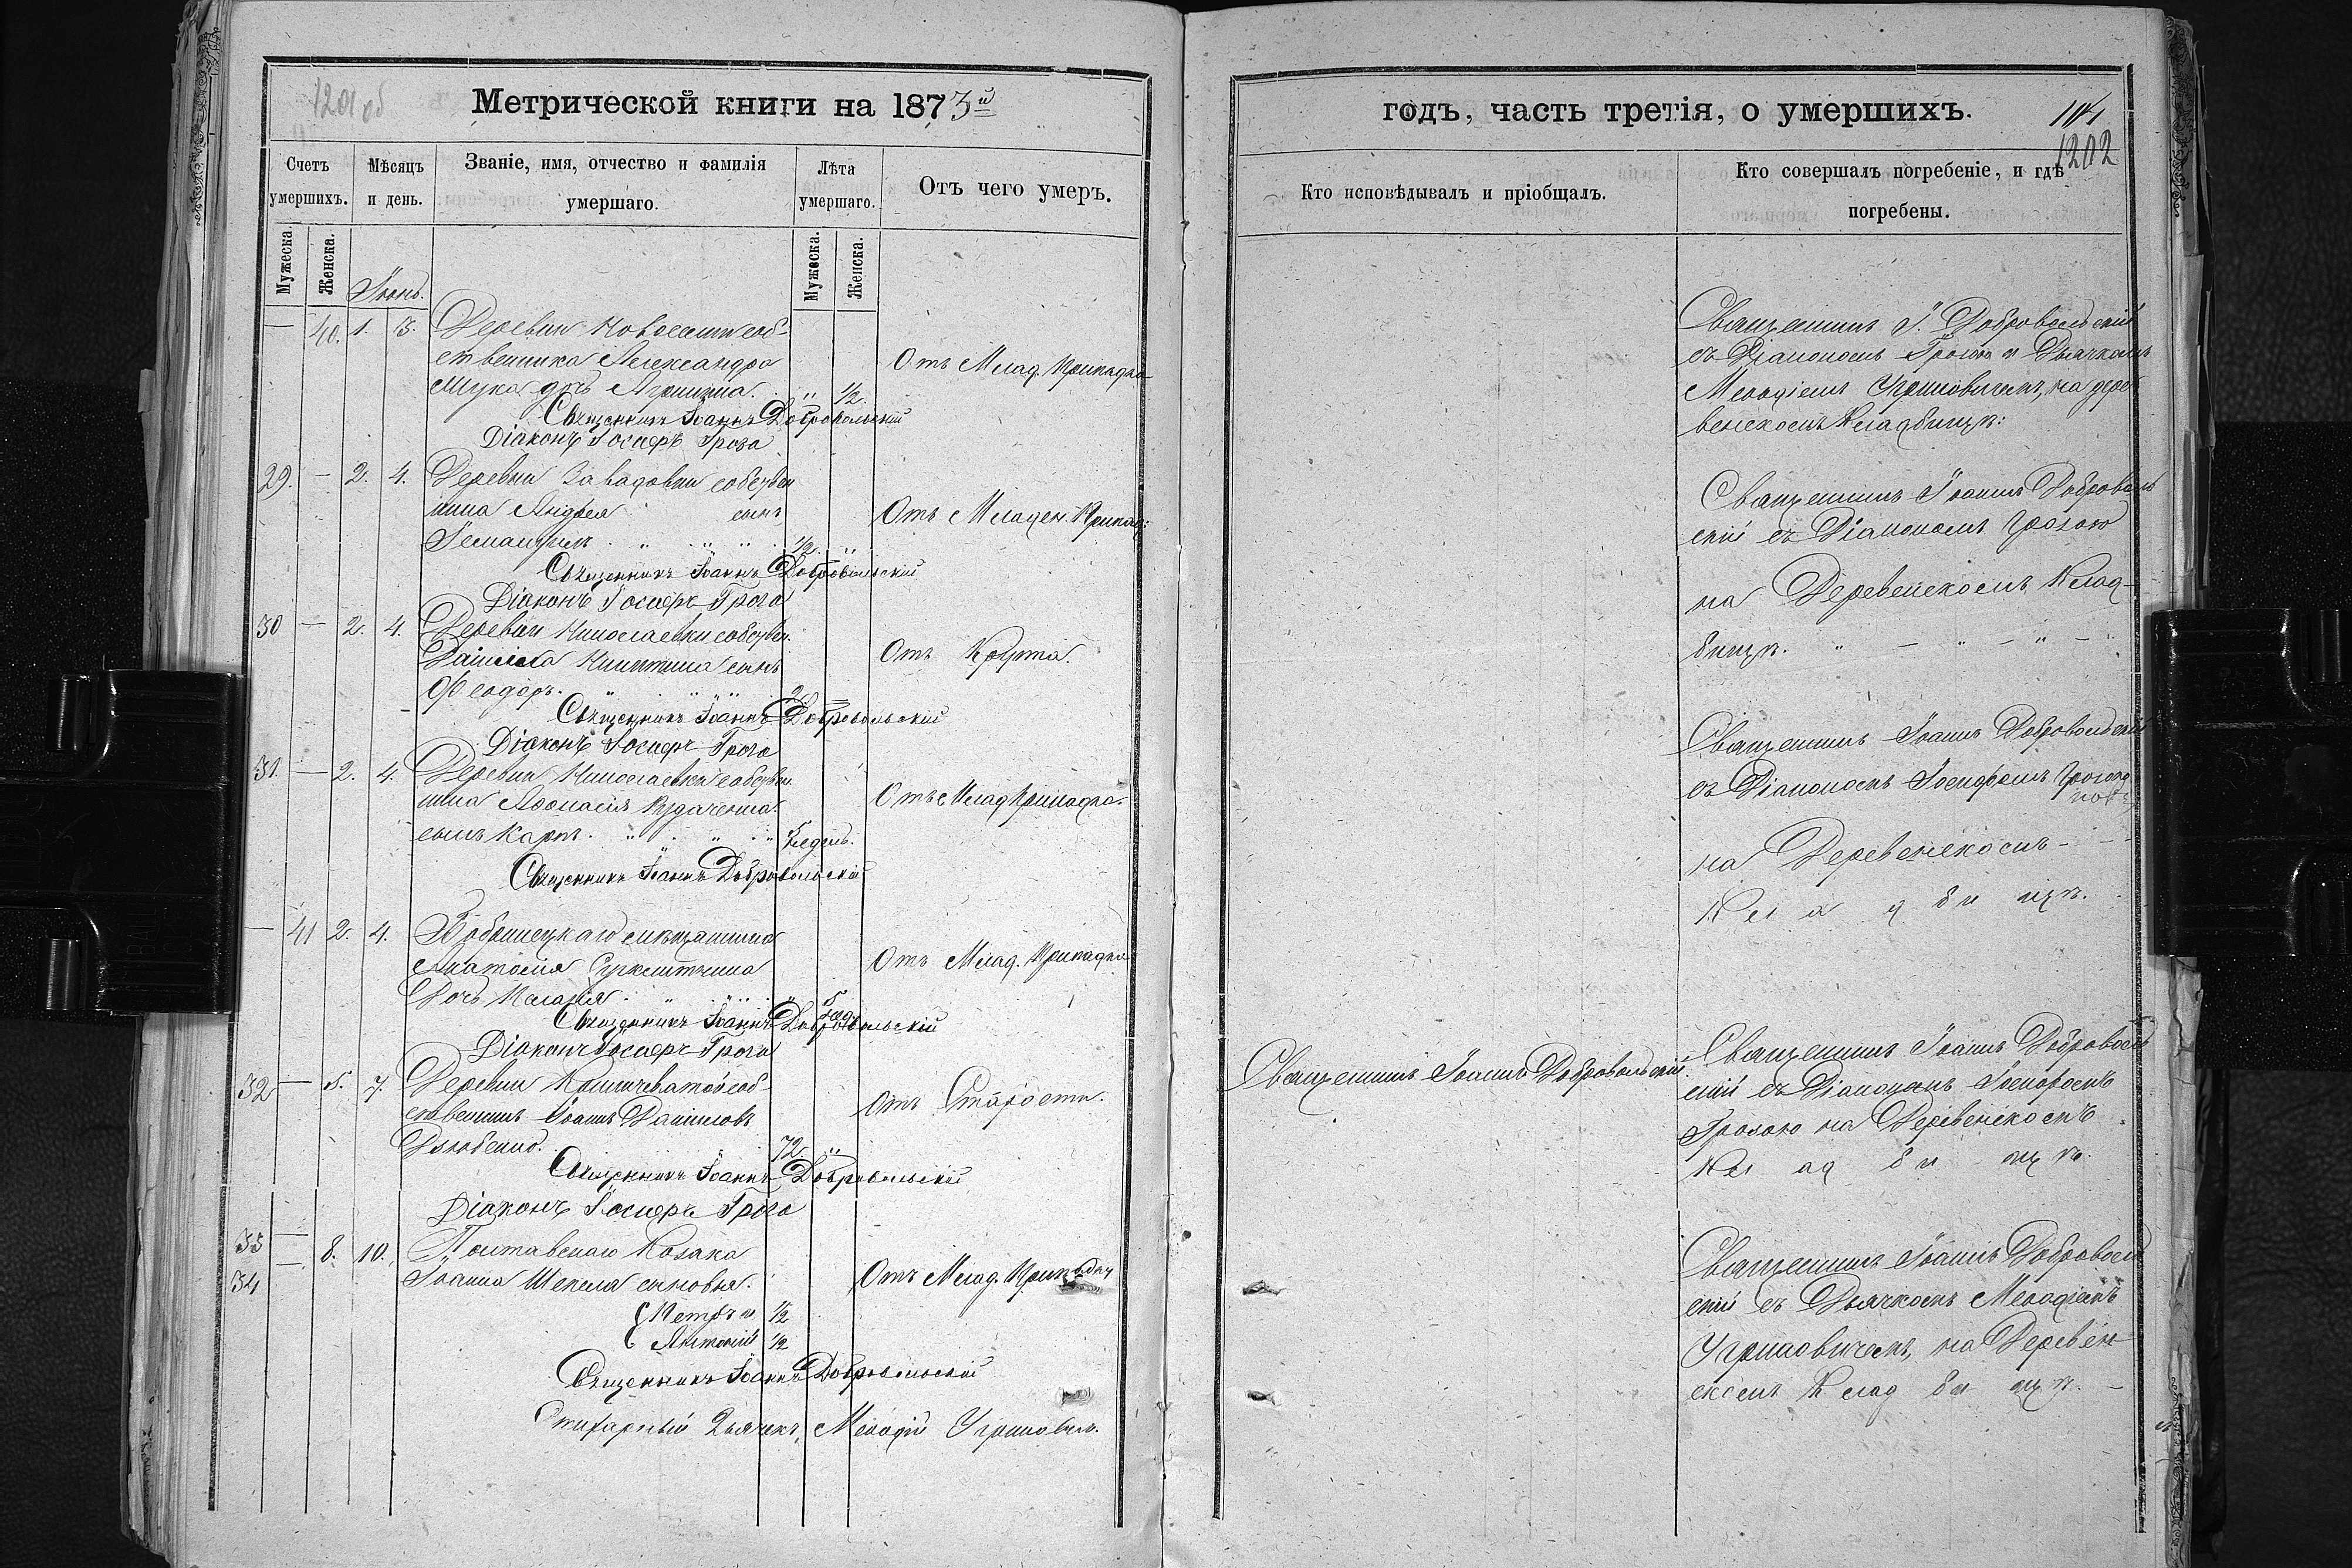 1201 об
Метрической книги на 1873й
Счетъ умершихъ.
Мѣсяцъ и день.
Званіе, имя, отчество и фамилія умершаго.
Лѣта умершаго.
Отъ чего умеръ.
Мужеска.
Женска.
Мужеска.
Женска.
Іюнь.
— 40. 1. 3. Деревни соб-
ственника Александра
дочь " 1/2.
Отъ Млад. Припадка
Священникъ Іоаннъ Добровольскій
Діаконъ Іосифъ Гроза
29. — 2. 4. Деревни Завадовки собствен
ника Андрея сынъ
1/2. "
Отъ Младен. Припад:
Священникъ Іоаннъ Добровольскій
Діаконъ Іосифъ Гроза
30 — 2. 4. Деревни Николаевки собствен.
Даніила Никитина сынъ
Ѳеодоръ. 2.
Отъ
Священникъ Іоаннъ Добровольскій
Діаконъ Іосифъ Гроза
31. — 2. 4. Деревни Николаевки собствен
ника Аѳанасія
сынъ Карпъ. недѣль.
Отъ Млад Припадка.
Священникъ Іоаннъ Добровольскій
— 41 2. 4. Бобринецкаго мѣщанина
Анатолія
Дочь "
Отъ Млад. Припадка
Священникъ Іоаннъ Добровольскій
Діаконъ Іосифъ Гроза
32 — 5. 7. Деревни Камышеватой соб
ственникъ Іоаннъ Даниловъ
72. "
Отъ Старости.
Священникъ Іоаннъ Добровольскій
Діаконъ Іосифъ Гроза
33 — 8. 10. Полтавскаго Козака
34 — Іоанна Шепеля сыновья.
Петръ и 1/2
Антоній 1/2
Отъ Млад. Припадка
Священникъ Іоаннъ Добровольскій
Стихарный Дьячекъ, Меѳодій Угриновичъ.
годъ, часть третія, о умершихъ.
104
1202
Кто исповѣдывалъ и пріобщалъ.
Кто совершалъ погребеніе, и гдѣ погребены.
Священникъ І. Добровольскій
съ Діакономъ Грозою и Дьячкомъ
Меѳодіемъ Угриновичемъ, на дере
венскомъ Кладбищѣ:
Священникъ Іоаннъ Доброволь
скій съ Діакономъ Грозою
на Деревенскомъ Клад-
бищѣ. " — " — " —
Священникъ Іоаннъ Добровольскій
съ Діакономъ Іосифомъ Грозою
на Деревенскомъ - -
Кладбищѣ.
Священникъ Іоаннъ Добровольскій.
Священникъ Іоаннъ Доброволь
скій съ Діакономъ Іосифомъ
Грозою на Деревенскомъ
Кладбищѣ.
Священникъ Іоаннъ Доброволь
скій съ Дьячкомъ Меѳодіемъ
Угриновичемъ, на Деревен
скомъ Кладбищѣ. —